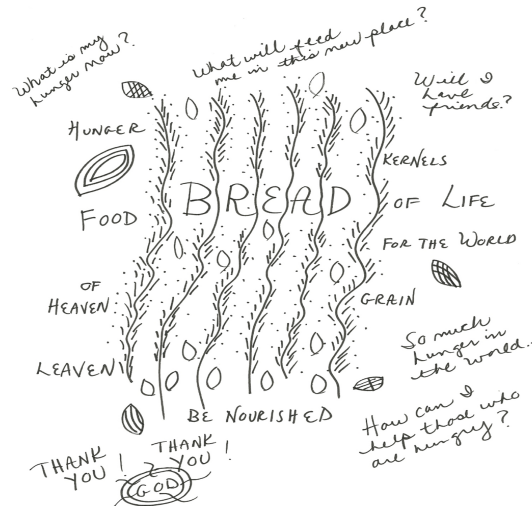 What is my
hunger now?
What will feed
me in this new place?
Will I
have
friends?
HUNGER
KERNELS
BREAD
OF LIFE
FOOD
FOR THE WORLD
OF
HEAVEN
GRAIN
LEAVEN
So much
hunger in
the world..
BE NOURISHED
How can I
help those who
are hungry?
THANK
YOU!
THANK
YOU!
GOD